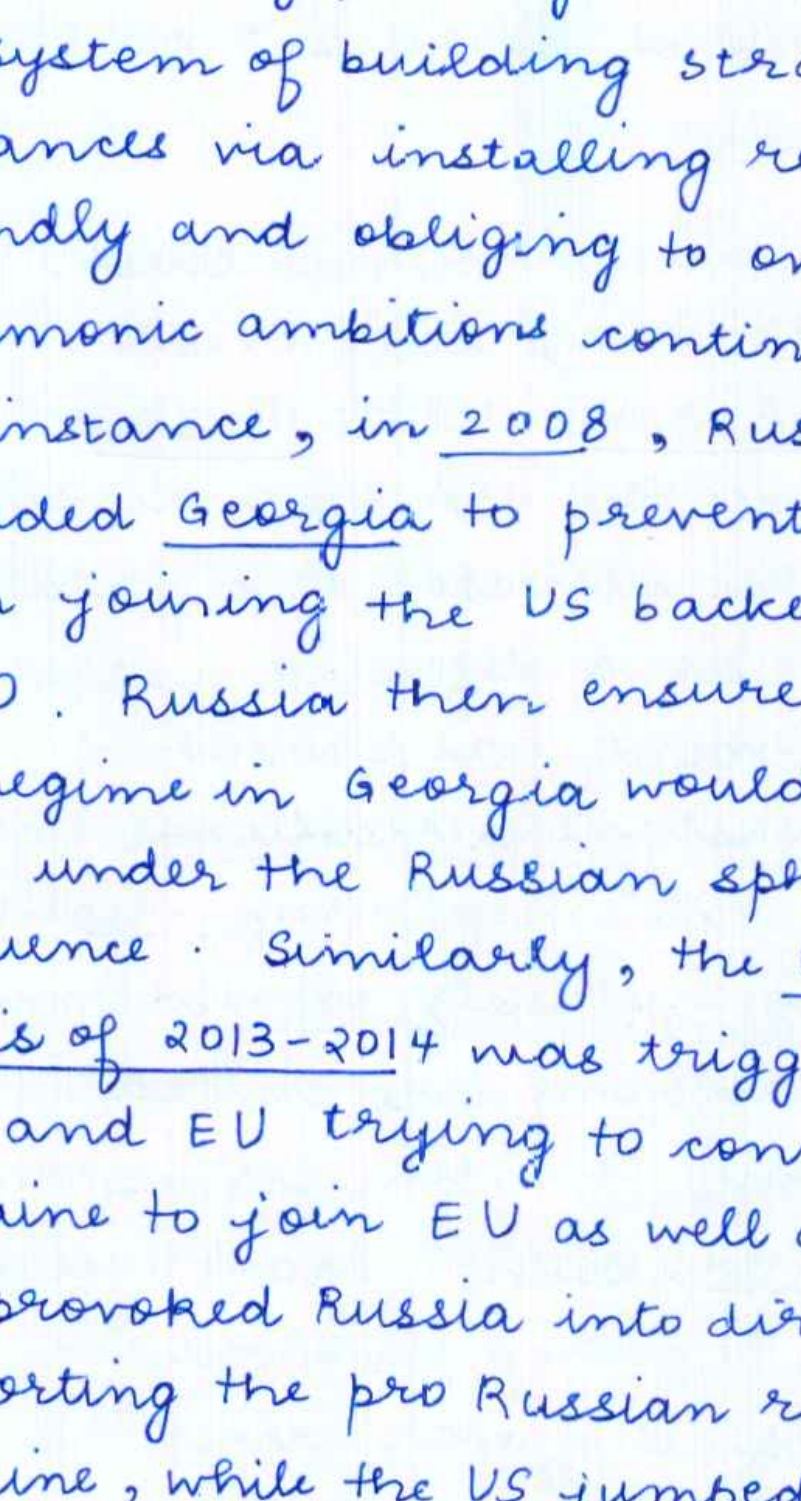 system of building stra
ances via installing re
ndly and obliging to on
monic ambitions contin
instance, in 2008, Rus
ded Georgia to prevent
joining the US backe
O. Russia then ensure
regime in Georgia would
under the Russian sph
uence. Similarly, the
is of 2013-2014 was trigg
and EU trying to con
aine to join EU as well a
provoked Russia into dir
orting the pro Russian r
ine, while the US jumped